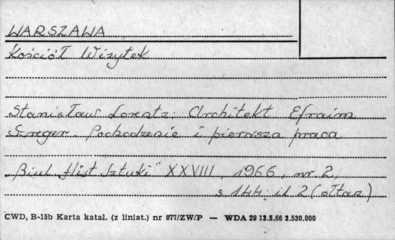 WARSZAWA
Kościół Wizytek
Stanisław Lorentz: Architekt Efraim
Szreger. Pochodzenie i pierwsza praca
„Biul. Hist. Sztuki" XXVIII, 1966, nr. 2,
s. 144; il. 2 (ołtarz)
CWD, B-15b Karta katal. (z liniat.) nr 877/ZW/P — WDA 29 13.5.66 3.530.000